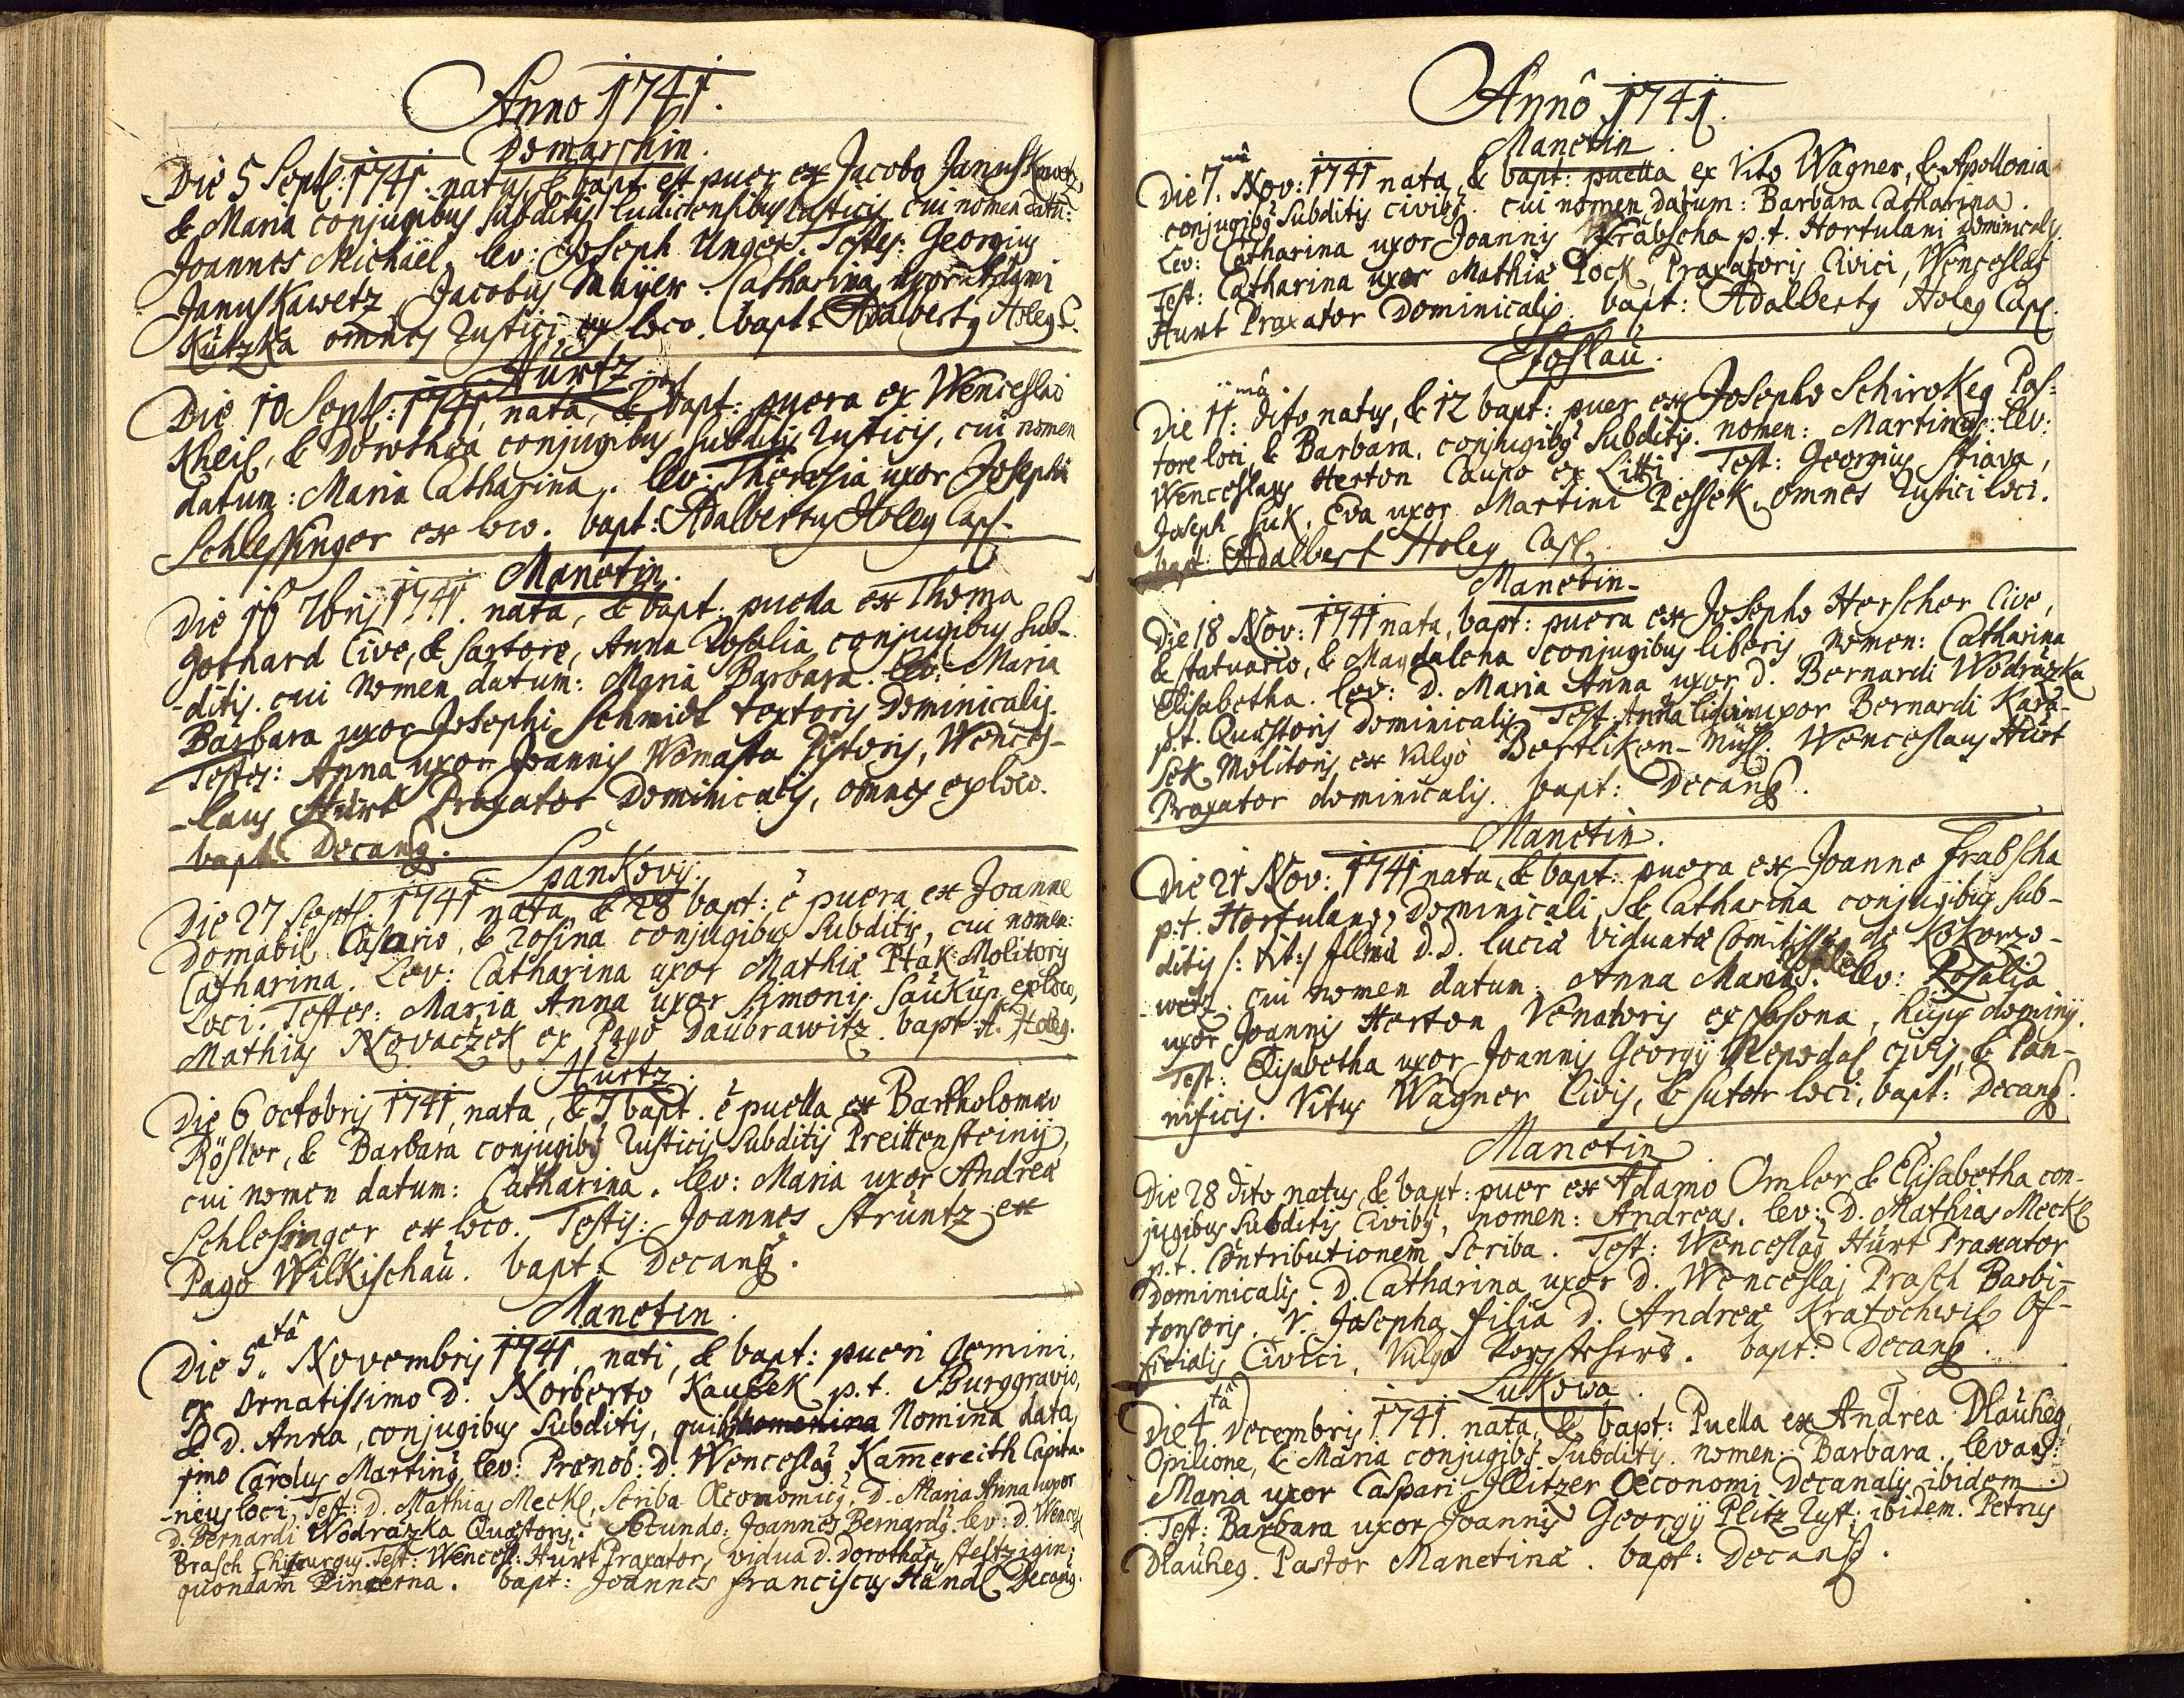 Anno 1741.
Domaschin.
Die 5 Septl: 1741. natus, & bapt: est puer ex Jacobo Januskawetz,
& Maria conjugibus subditis ludicensibus rusticis, cui nomen datū:
Joannes Michäel, lev: Joseph Unger. Testes: Georgius
Januskawetz, Jacobus Maÿer. Catharina uxor Adami
Kutzka omnes rustici ex loco. bapt: Adalbertg Holeg C.
Hurtz
Die 10 Septl: 1741, nata, & bapt: puera ex Wenceslao
Kheil, & Dorothea conjugibus subditis rusticis, cui nomen
datum: Maria Catharina. lev: Theresia uxor Josephi
Schlessinger ex loco. bapt: Adalbertg Holeg Capl.
Manetin.
Die 16 7bris 1741. nata, & bapt: puella ex Thoma
Gothard Cive, & sartore, Anna Rosalia conjugibus sub-
-ditis. cui nomen datum: Maria Barbara. lev: Maria
Barbara uxor Josephi Schmidt textoris Dominicalis.
Testes: Anna uxor Joannis Wemasta Pistoris, Wences-
-laus Hürt Praxator Dominicalis, omnes ex loco.
bapt: Decang.
Spankovÿ.
Die 27 Septl: 1741 nata, & 28 bapt: ē puera ex Joanne
Domabil Casario, & Rosina conjugibus subditis, cui nomen:
Catharina. Lev: Catharina uxor Mathiæ Ptak Molitoris
Loci. Testes: Maria Anna uxor Simonis Saukup ex loco,
Mathias Novaczek ex Pago Daubrawitz. bapt: A. Holeg.
Hurtz.
Die 6 octobris 1741, nata, & 7 bapt. ē puella ex Bartholomeo
Rösler, & Barbara conjugibg rusticis subditis Preittensteinÿ,
cui nomen datum: Catharina. lev: Maria uxor Andreæ
Schlesinger ex loco. Testis: Joannes Struntz ex
Pago Wilkischau. bapt: Decang.
Manetin.
Die 5ta Novembris 1741, nati, & bapt: pueri Gemini,
ex Ornatissimo D. Norberto Kaubek p.t. Burggravio,
& D. Anna, conjugibus subditis, quibg Nomina data,
primo Carolus Marting, lev: Prænob: D. Wenceslag Kamereith Capita-
-neus loci, Test: D. Mathias Meckl, Scriba Oeconomicg, D. Maria Anna uxor
D. Bernardi Wodrazka Quæstoris. Secundo: Joannes Bernardg. lev: D. Wencesl
Brasch Chirurgus. Test: Wencesl: Hürt Praxator, vidua D. Dorothæa
quondam Pincerna. bapt: Joannes Franciscus Händl Decang.
Annô 1741.
Manetin.
Die 7mâ Nov: 1741 nata, & bapt: puella ex Vito Wagner, & Apollonia
conjugibg subditis civibg. cui nomen datum: Barbara Catharina.
Lev: Catharina uxor Joannis Frabscha p.t. Hortulani Dominicalis.
Test: Catharina uxor Mathiæ Pock, Praxatoris Civici, Wenceslag
Hurt Praxator Dominicalis. bapt: Adalbertg Holeg Capl.
Stoslau.
Die 11mâ dito natus, & 12 bapt: puer ex Josepho Schirokeg Pas-
tore loci, & Barbara, conjugibg subditis. nomen: Martinus. lev:
Wenceslaus Herton Caupo ex Litti. Test: Georgius Stiava,
Joseph Suk, Eva uxor Martini Pessek, omnes rustici loci.
bapt: Adalbert Holeg Capl.
Manetin.
Die 18 Nov: 1741 nata, bapt: puera ex Josepho Herscher Cive,
& statuario, & Magdalena conjugibus liberis, nomen: Catharina
Elisabetha. lev: D. Maria Anna uxor D. Bernardi Wodrazka
p.t. Quæstoris Dominicalis. Test: Anna uxor Bernardi Kara-
sek Molitoris ex vulgo Bertliken-Mühl. Wenceslaus Hürt
Praxator dominicalis. bapt: Decang.
Manetin.
Die 21 Nov: 1741 nata, & bapt: puera ex Joanne Frabscha
p.t. Hortulano, Dominicali, & Catharina conjugibus sub-
ditis /: tit:/ Illmæ D.D. Lucia viduata Comitissæ de Kokorzo-
wetz. cui nomen datum: Anna Maria. lev: Rosalia
uxor Joannis Herton Venatoris ex Plosona, hujus dominÿ.
Test: Elisabetha uxor Joannis Georgÿ Nepodal civis, & Pan-
nificis. Vitus Wagner Civis, & sutor loci, bapt: Decang.
Manetin
Die 28 dito natus, & bapt: puer ex Adamo Omler & Elisabetha con-
jugibus subditis Civibg, nomen: Andreas. lev: D. Mathias Meckl
p.t. Contributionem scriba. Test: Wenceslag Hürt Praxator
Dominicalis. D. Catharina uxor D. Wenceslai Prasch Barbi-
tonsoris. V. Josepha filia D. Andreæ Kratochwil Of-
ficialis Civici, vulgo. bapt: Decang.
Lukowa.
Die 4tâ Decembris 1741. nata, & bapt: Puella ex Andrea Dlauheg,
Opilione, & Maria conjugibg subditis. nomen: Barbara. levans:
Maria uxor Caspari Glitzer Oeconomi Decanalis ibidem.
Test: Barbara uxor Joannis Georgÿ Plitz rust: ibidem. Petrus
Dlauheg. Pastor Manetinæ. bapt: Decang.